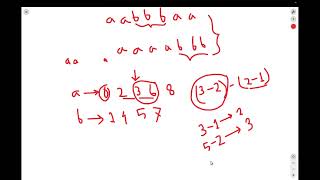 aabbbaa
aaaabbb
aa .
a → 0 2 3 6 8 (3-2) - (2-1)
b → 3 4 5 7
3-1 → 2
5-2 → 3